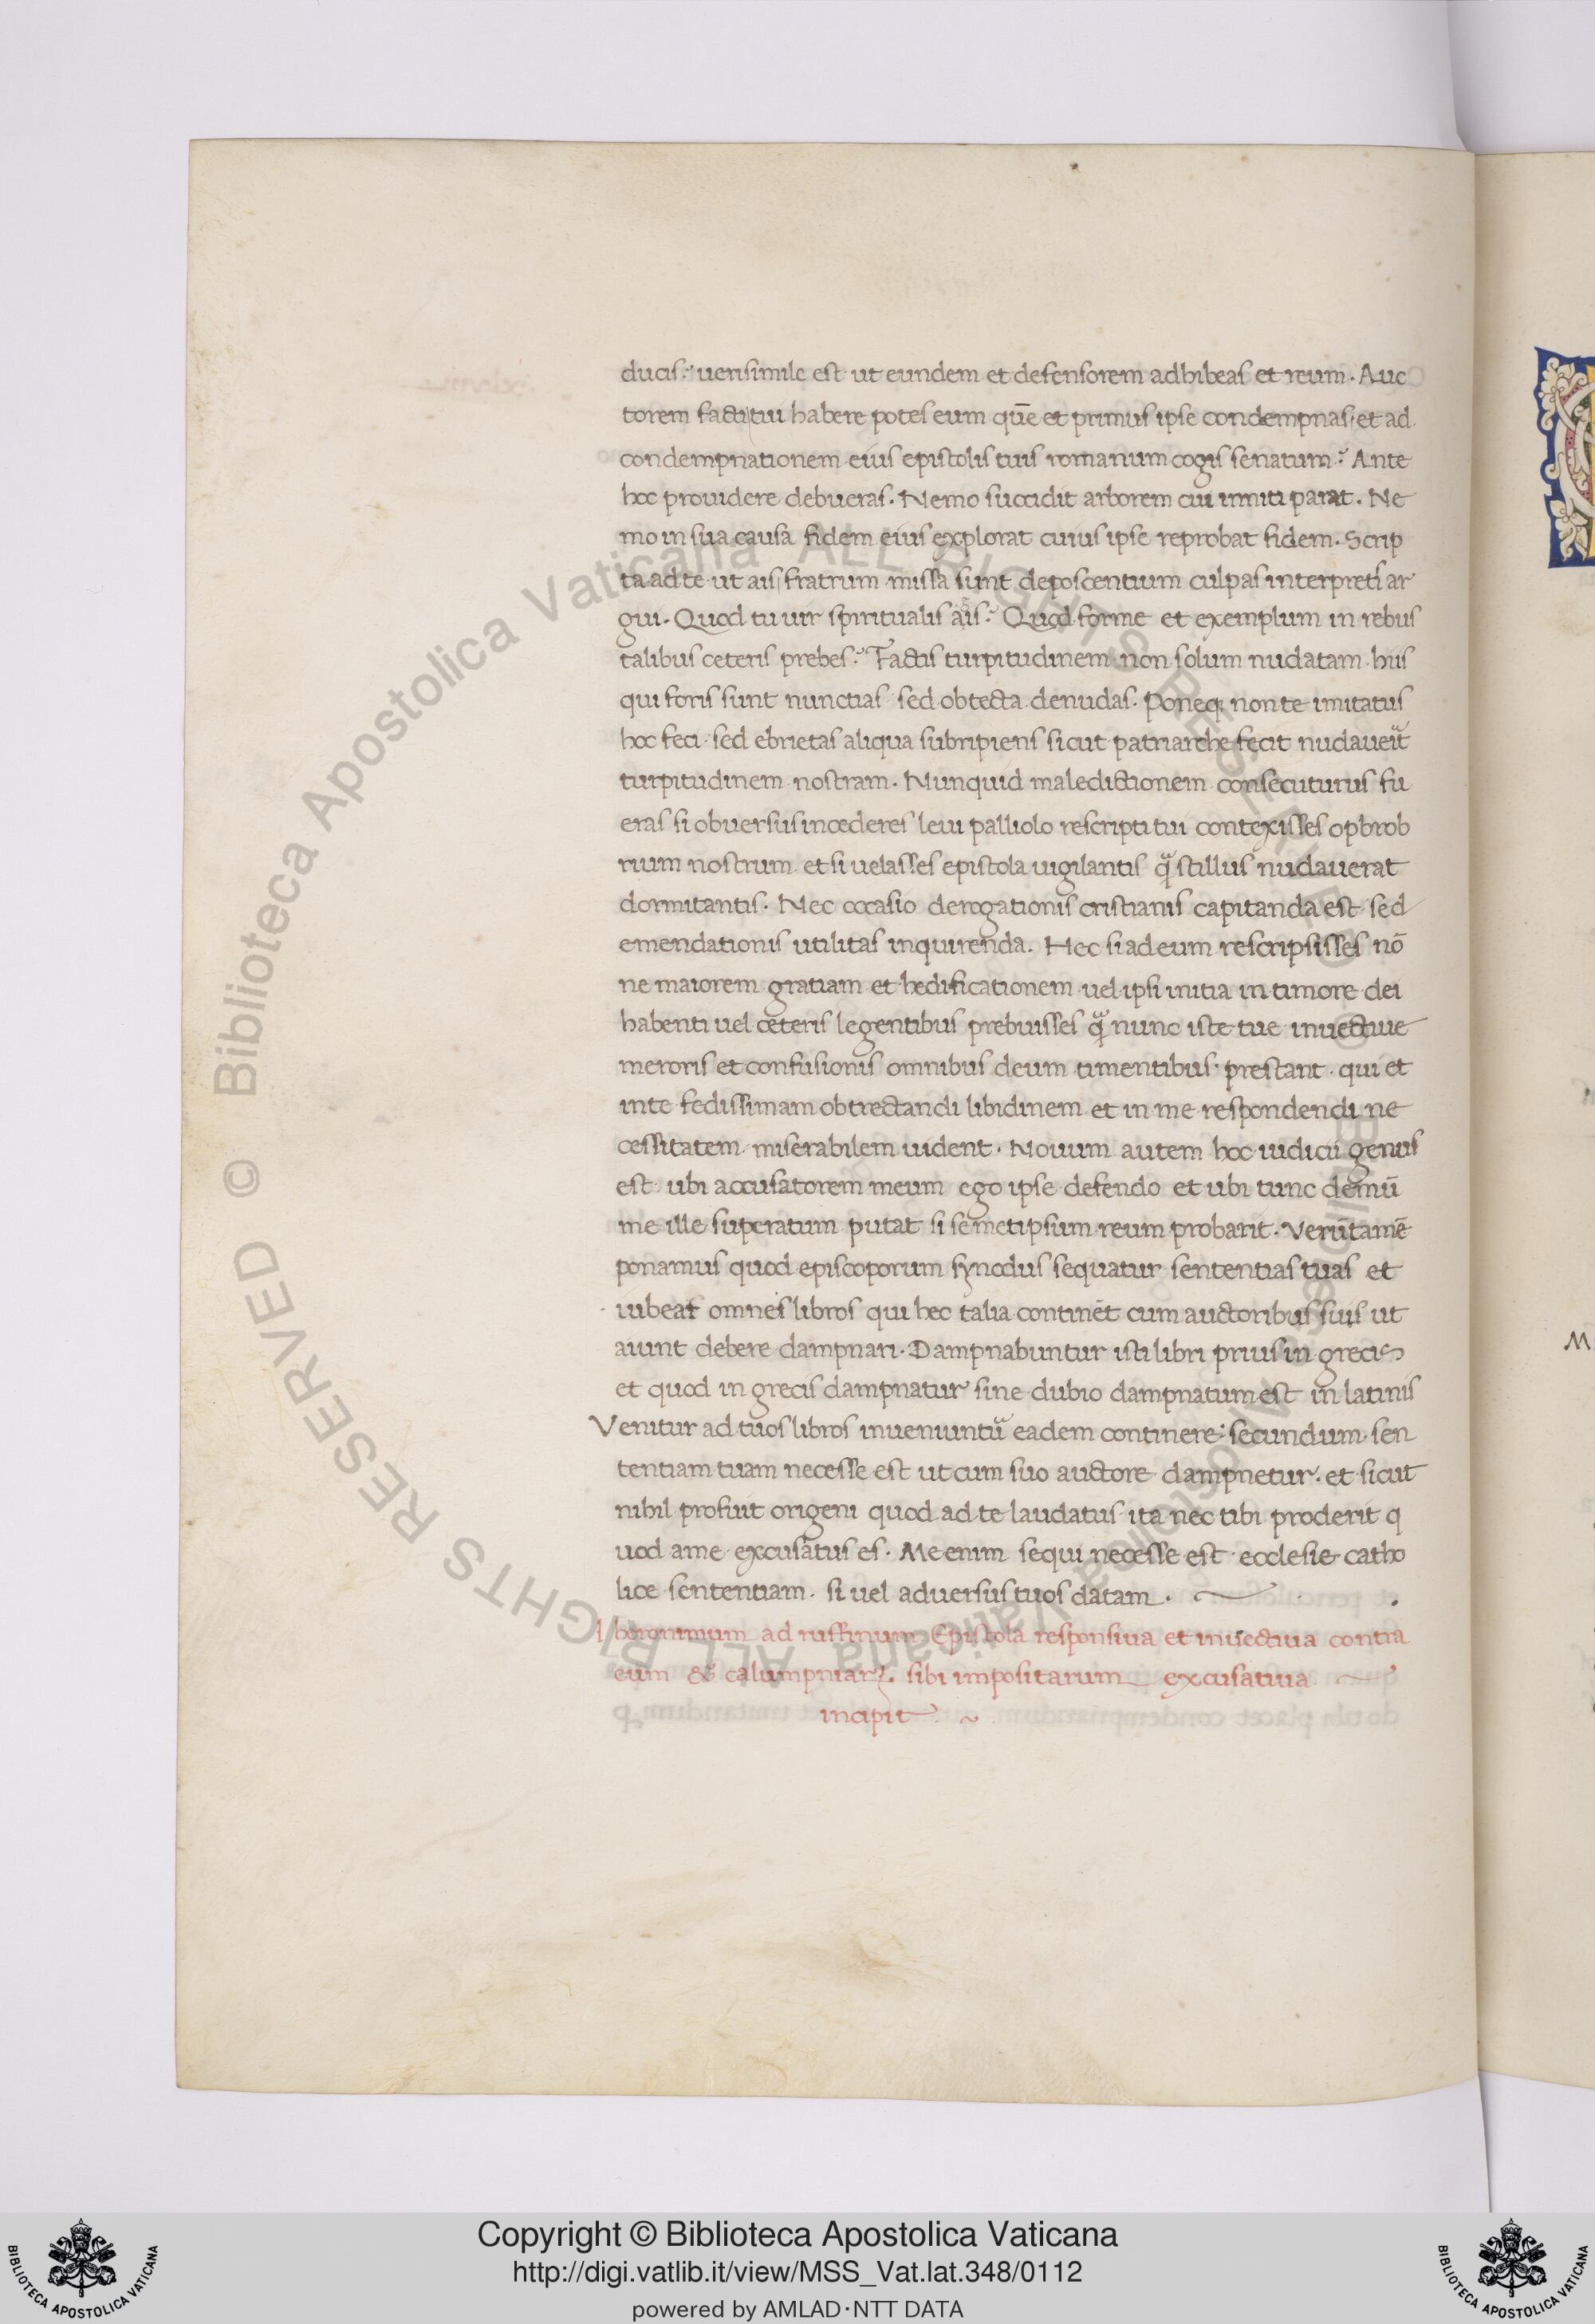 ducis? uerisimile est ut eundem et defensorem adhibeas et reum. Auc
torem facti tui habere potes eum quē et primus ipse condempnas, et ad
condempnationem eius epistolis tuis romanum cogis senatum? Ante
hoc prouidere debueras. Nemo succidit arborem cui inniti parat. Ne
mo in sua causa fidem eius explorat cuius ipse reprobat fidem. Scrip
ta ad te ut ais fratrum missa sunt deposcentium culpas interpretis ar
gui. Quod tu uir spiritualis ais? Quod forme et exemplum in rebus
talibus ceteris prebes? Factis turpitudinem non solum nudatam hiis
qui foris sunt nunctias sed obtecta denudas. Poneq; non te imitatus
hoc feci sed ebrietas aliqua subripiens sicut patriarche fecit nudaueit
turpitudinem nostram. Nunquid maledictionem consecuturus fu
eras si obuersus incederes leui palliolo rescripti tui contexisses opbrob
rium nostrum et si uelasses epistola uigilantis q̃ stillus nudauerat
dormitantis. Nec occasio derogationis cristianis capitanda est sed
emendationis utilitas inquirenda. Hec si ad eum rescripsisses nō
ne maiorem gratiam et hedificationem uel ipsi initia in timore dei
habenti uel ceteris legentibus prebuisses q̃ nunc iste tue inuectiue
meroris et confusionis omnibus deum timentibus prestant. qui et
in te fedissimam obtrectandi libidinem et in me respondendi ne
cessitatem miserabilem uident. Nouum autem hoc iudicii genus
est ubi accusatorem meum ego ipse defendo et ubi tunc demū
me ille superatum putat si semetipsum reum probarit. Verūtamē
ponamus quod episcoporum synodus sequatur sententias tuas et
iubeat omnes libros qui hec talia continēt cum auctoribus suis ut
aiunt debere dampnari. Dampnabuntur isti libri prius in grecis
et quod in grecis dampnatur sine dubio dampnatum est in latinis
Venitur ad tuos libros inueniuntu᷑ eadem continere: secundum sen
tentiam tuam necesse est ut cum suo auctore dampnetur. et sicut
nihil profuit origeni quod ad te laudatus ita nec tibi proderit q
uod a me excusatus es. Me enim sequi necesse est ecclesie catho
lice sententiam. si uel aduersus tuos datam.
Iheronimum ad ruffinum Epistola responsiua et inuectiua contra
eum & calumpniarꝝ sibi impositarum excusatiua
incipit
© Biblioteca Apostolica Vaticana ALL RIGHTS RESERVED
Copyright © Biblioteca Apostolica Vaticana
http://digi.vatlib.it/view/MSS_Vat.lat.348/0112
powered by AMLAD·NTT DATA
BIBLIOTECA APOSTOLICA VATICANA
BIBLIOTECA APOSTOLICA VATICANA